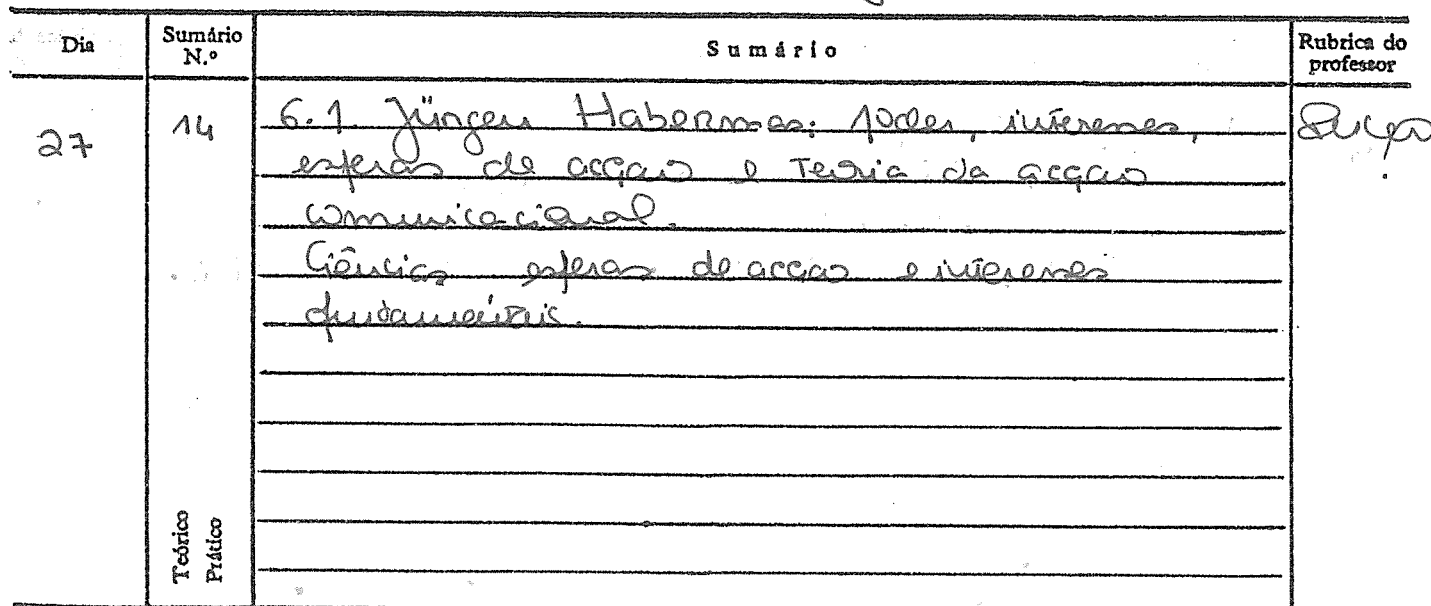 Dia Sumário N.º Sumário Rubrica do professor
27 14 6.1. Jürgen Habermas: poder, interesses,
esferas de acção e Teoria da acção
comunicacional.
Ciência, esferas de acção e interesses
fundamentais.
Teórico
Prático